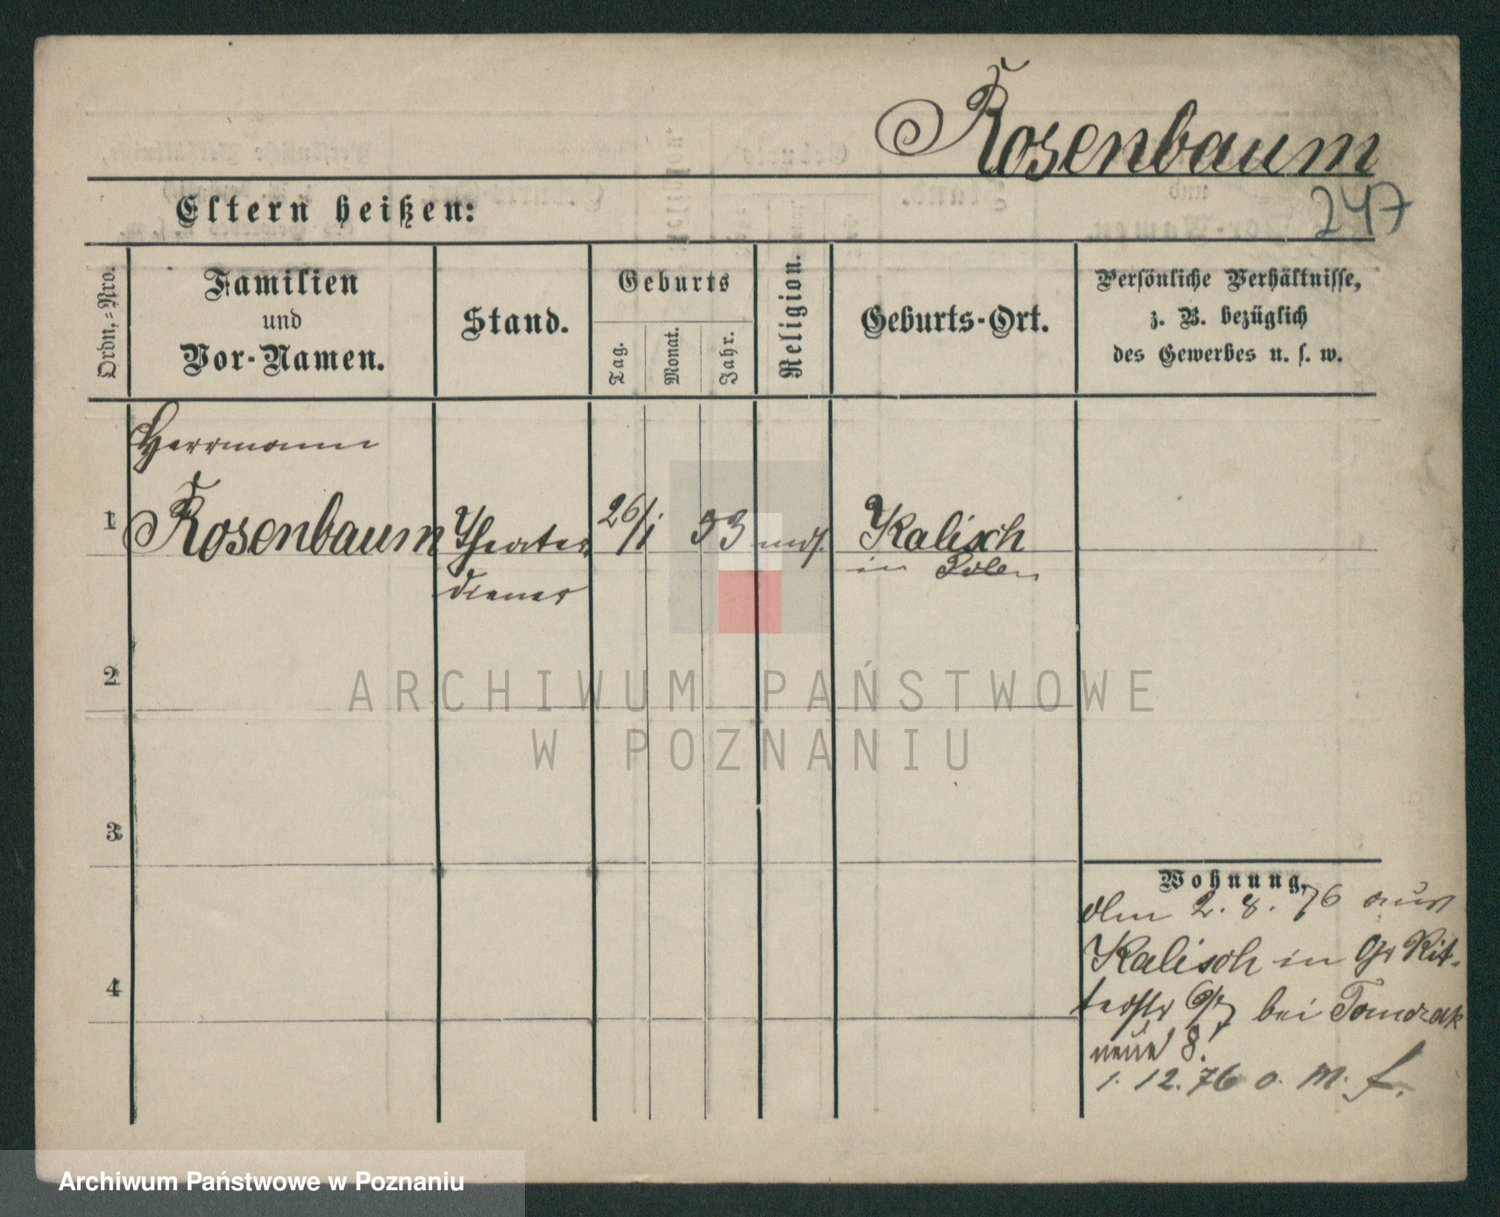 Rosenbaum
247
Eltern heißen:
Ordn.-Nro.
Familien
und
Vor-Namen.
Stand.
Geburts
Tag.
Monat.
Jahr.
Religion.
Geburts-Ort.
Persönliche Verhältnisse,
z. B. bezüglich
des Gewerbes u. s. w.
Herrmann
1 Rosenbaum Theater 26/1 33 Kalisch
diener in Polen
2
ARCHIWUM PAŃSTWOWE
W POZNANIU
3
Wohnung.
2. 8. 76 aus
Kalisch in Gr Rit-
terstr bei Tomczak
neue 8!
1. 12. 76 o. M. f.
4
Archiwum Państwowe w Poznaniu